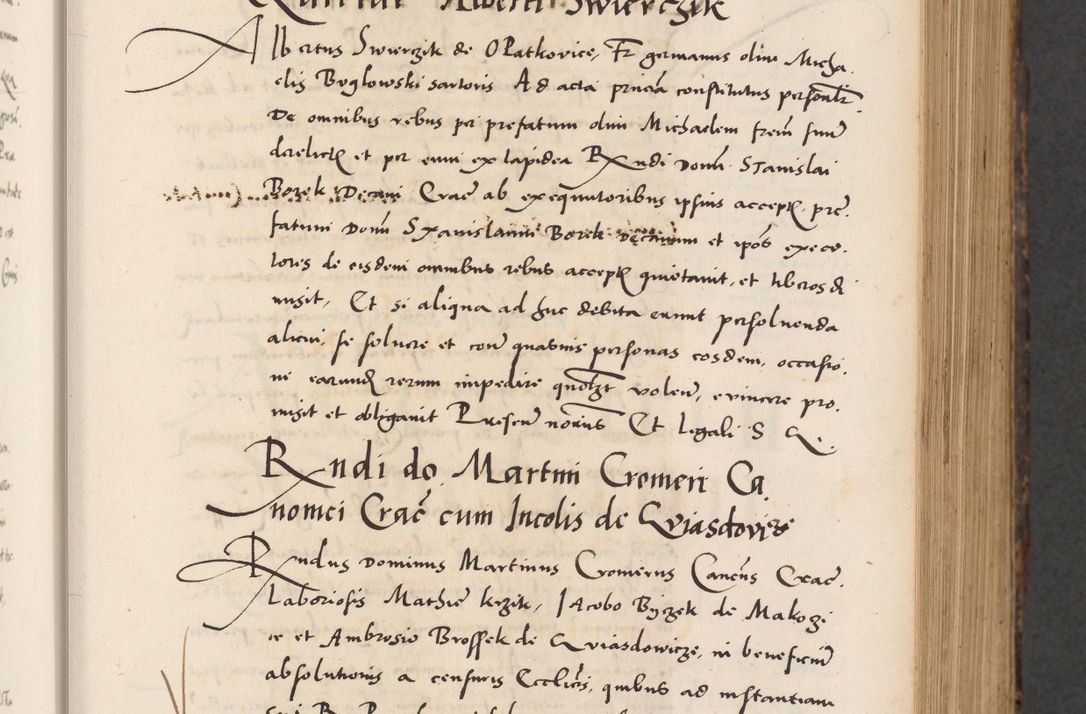 Alberti Swierczik
Albertus Swierczik de OPatkovice, Fr germanus olim Micha.
elis Boglowski sartoris Ad acta pñciã constitutus personalr.
De omnibus rebus per prefatum olim Michaelem frem suũ
derelict et per eum ex lapidea Rndi Domi Stanislai
Borek Decani Crač ab exequutoribus ipsius accept. pre.
fatum Domũ Stanislaum Borek Decanum et ipos execu.
tores de eisdem omnibus rebus accept quietavit, et liberos di
misit, Et si aliqua ad huc debita erunt persolvenda
alicui, se solvere et com quasvis personas eosdem, occasio.
ne earund rerum impedire quolzt volen, evincere pro.
misit et obligavit Presen novius Et legali S
Rndi do. Martini Cromeri Ca.
nonici Crač cum Incolis de Qviasdovice
Rndus Dominus Martinus Cromerus Canens Crac.
Laboriosis Mathie krzik, Jacobo Byzek de Makozi
ce et Ambrosio Brossek de Qviasdowicze, in beneficiũ
absolutionis a censuris Ecclicis, quibus ad instantiam